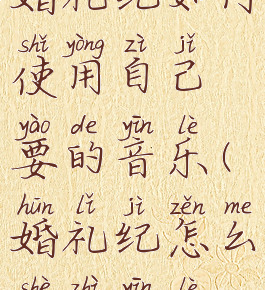 婚礼纪如何
shǐ yòng zì jǐ
使用自己
yào de yīn lè
要的音乐(
hūn lǐ jì zěn me
婚礼纪怎么
shè zhì yīn lè